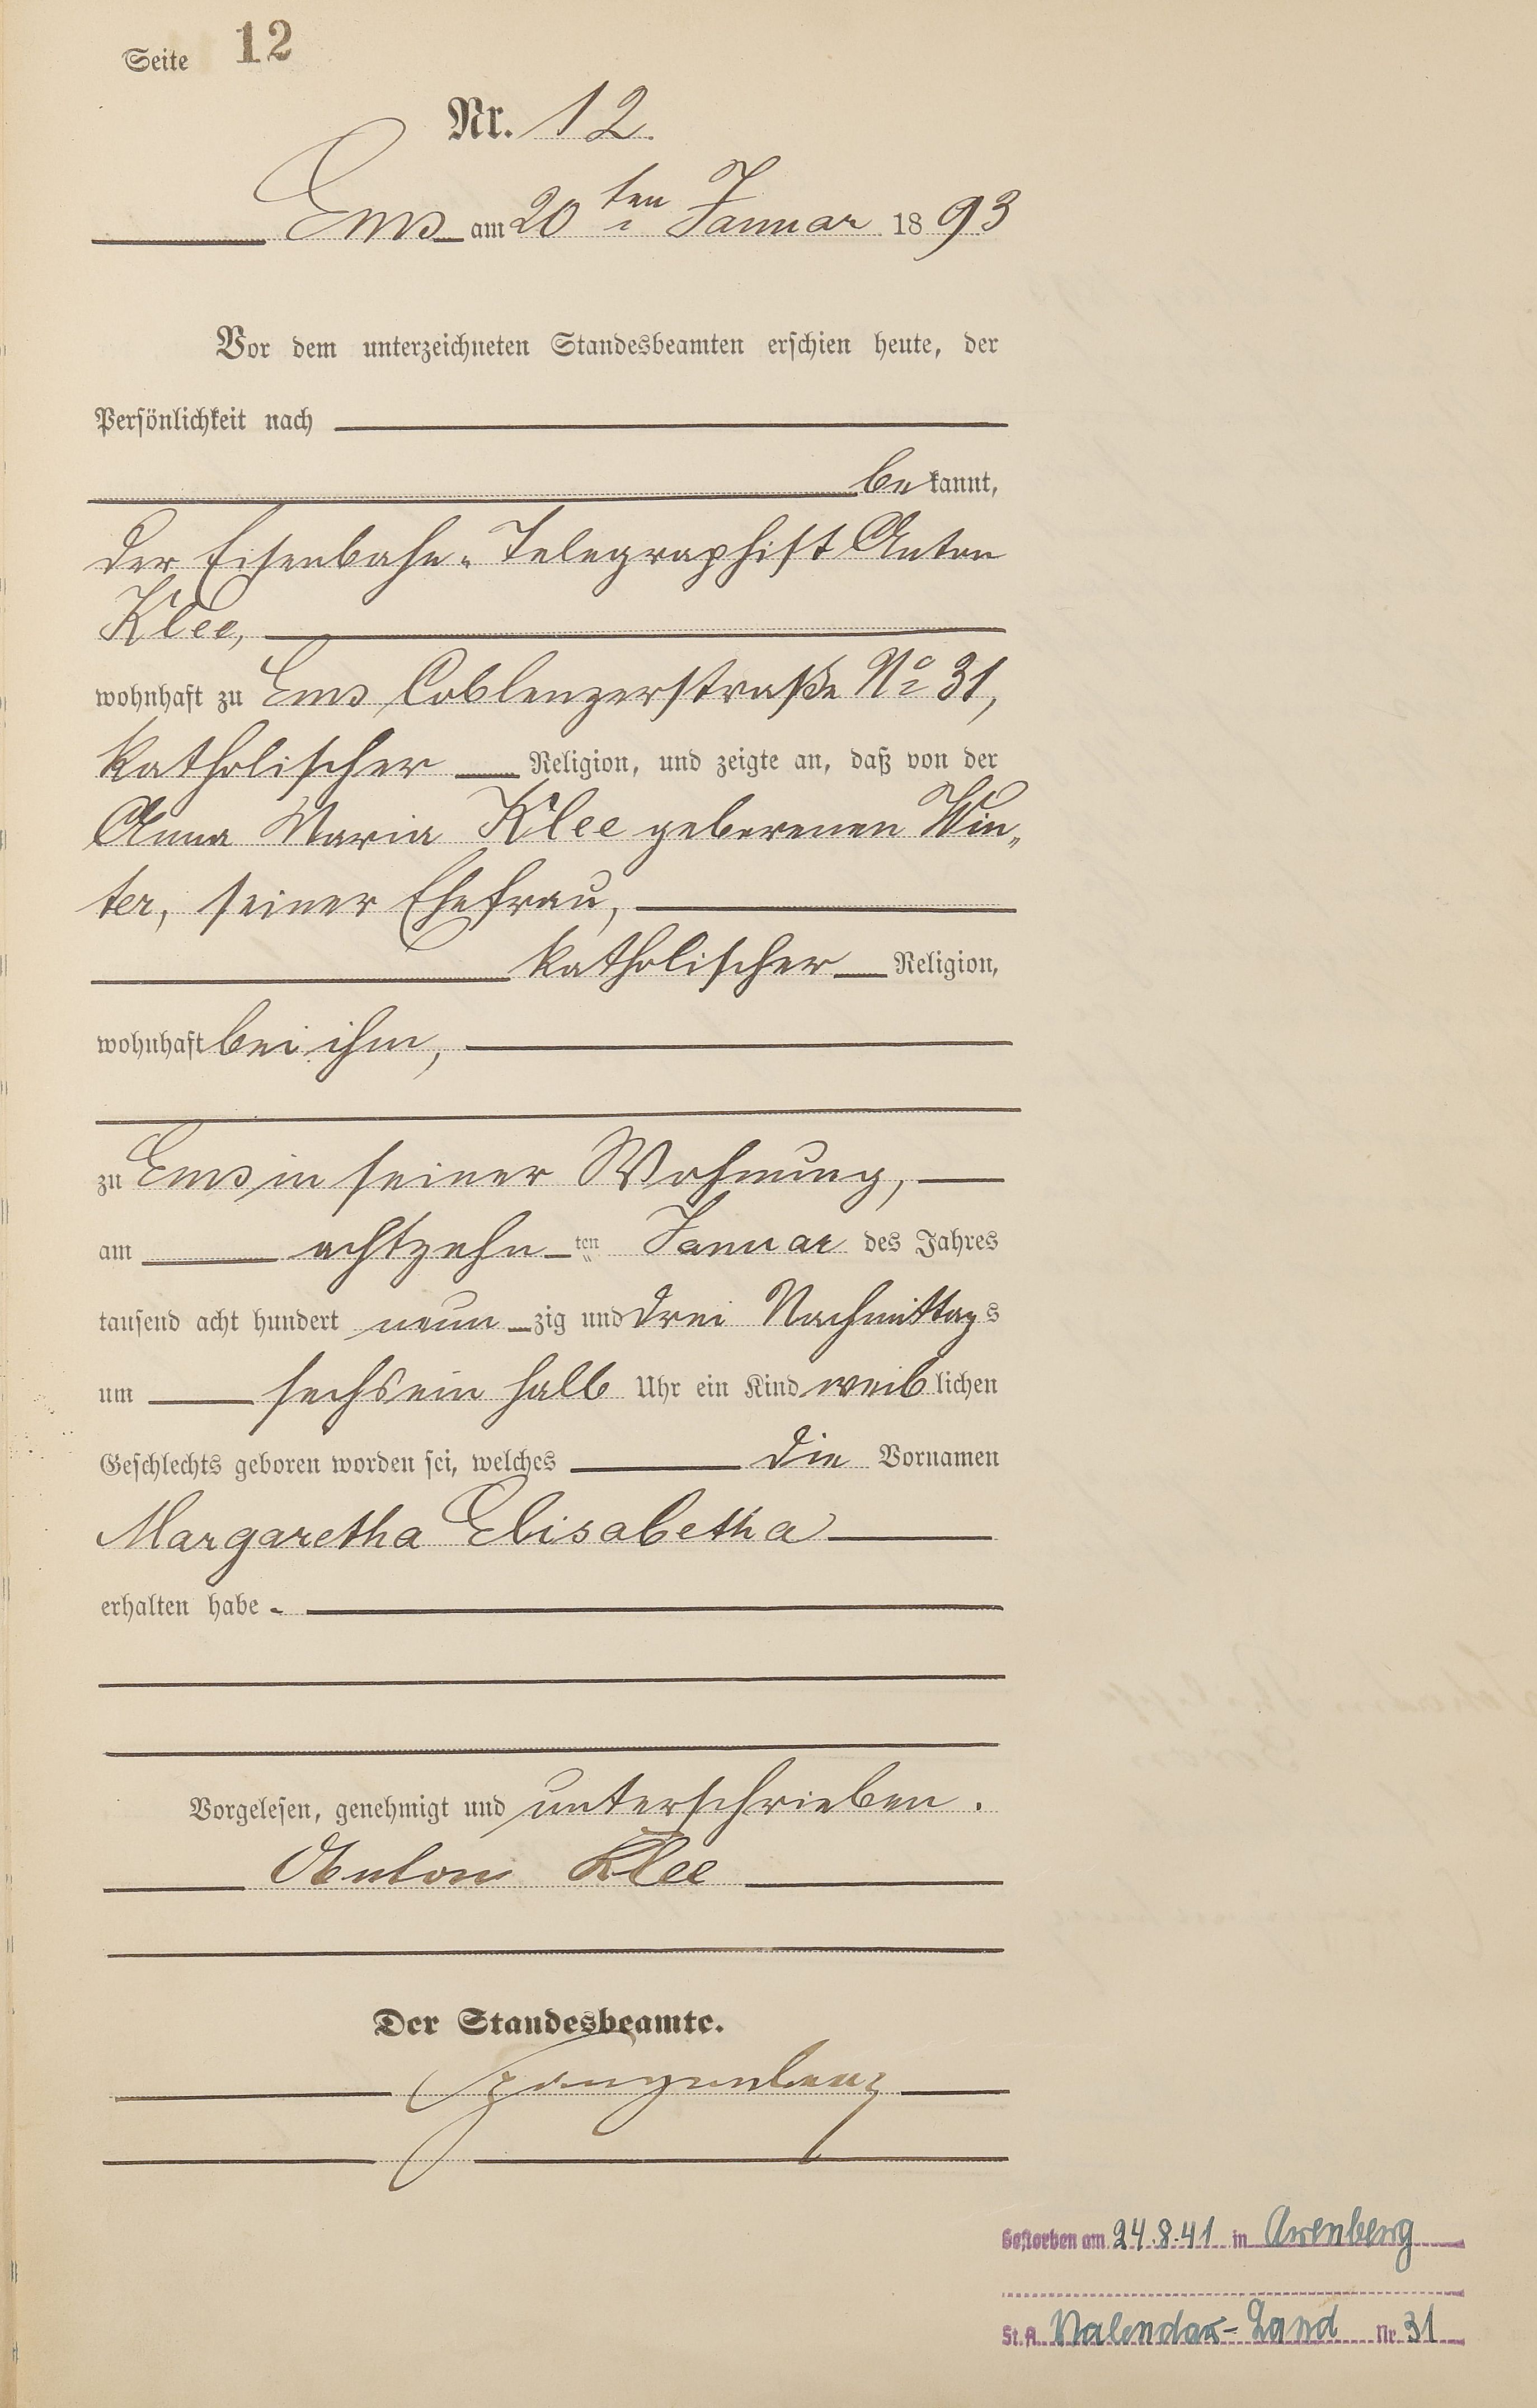 Seite 12
Nr. 12.
Ems am 20ten Januar 1893
Vor dem unterzeichneten Standesbeamten erschien heute, der
Persönlichkeit nach
bekannt,
der Eisenbahn-Telegraphist Anton
Klee,
wohnhaft zu Ems Coblenzerstraße No 31,
katholischer Religion, und zeigte an, daß von der
Anna Maria Klee geborenen Win„
ter, seiner Ehefrau,
katholischer Religion,
wohnhaft bei ihm,
zu Ems in seiner Wohnung,
am achtzehn ten Januar des Jahres
tausend acht hundert neunzig und drei Nachmittags
um sechs ein halb Uhr ein Kind weiblichen
Geschlechts geboren worden sei, welches die Vornamen
Margaretha Elisabetha
erhalten habe.
Vorgelesen, genehmigt und unterschrieben.
Anton Klee
Der Standesbeamte.
Gestorben am 24.8.41 in Arenberg
St.A. Valendar-Land Nr. 31